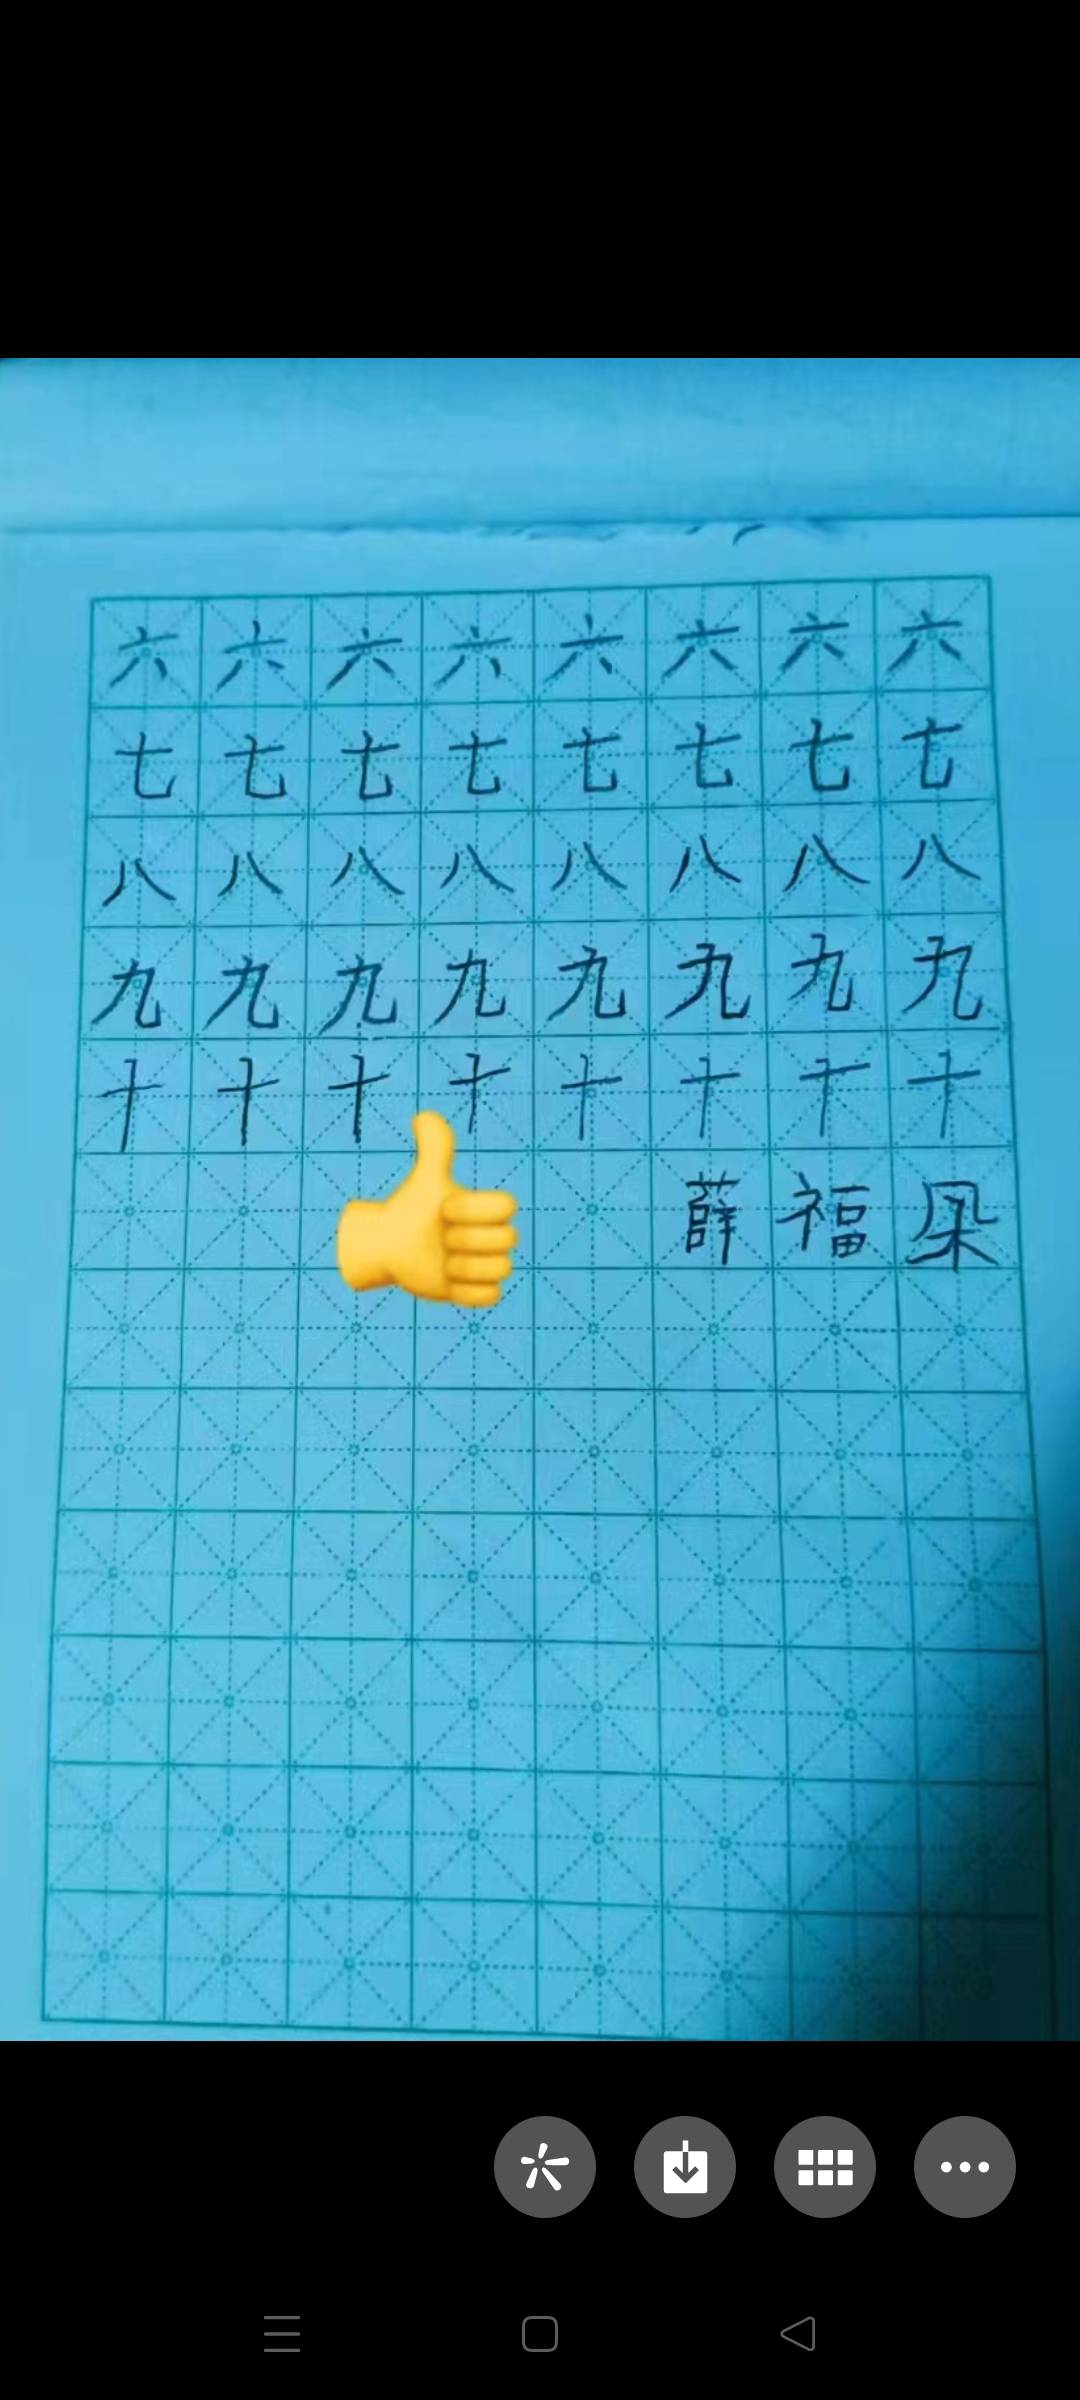 六六六六六六六六
七七七七七七七七
八八八八八八八八
九九九九九九九九
十十十十十十十十
薛福朵